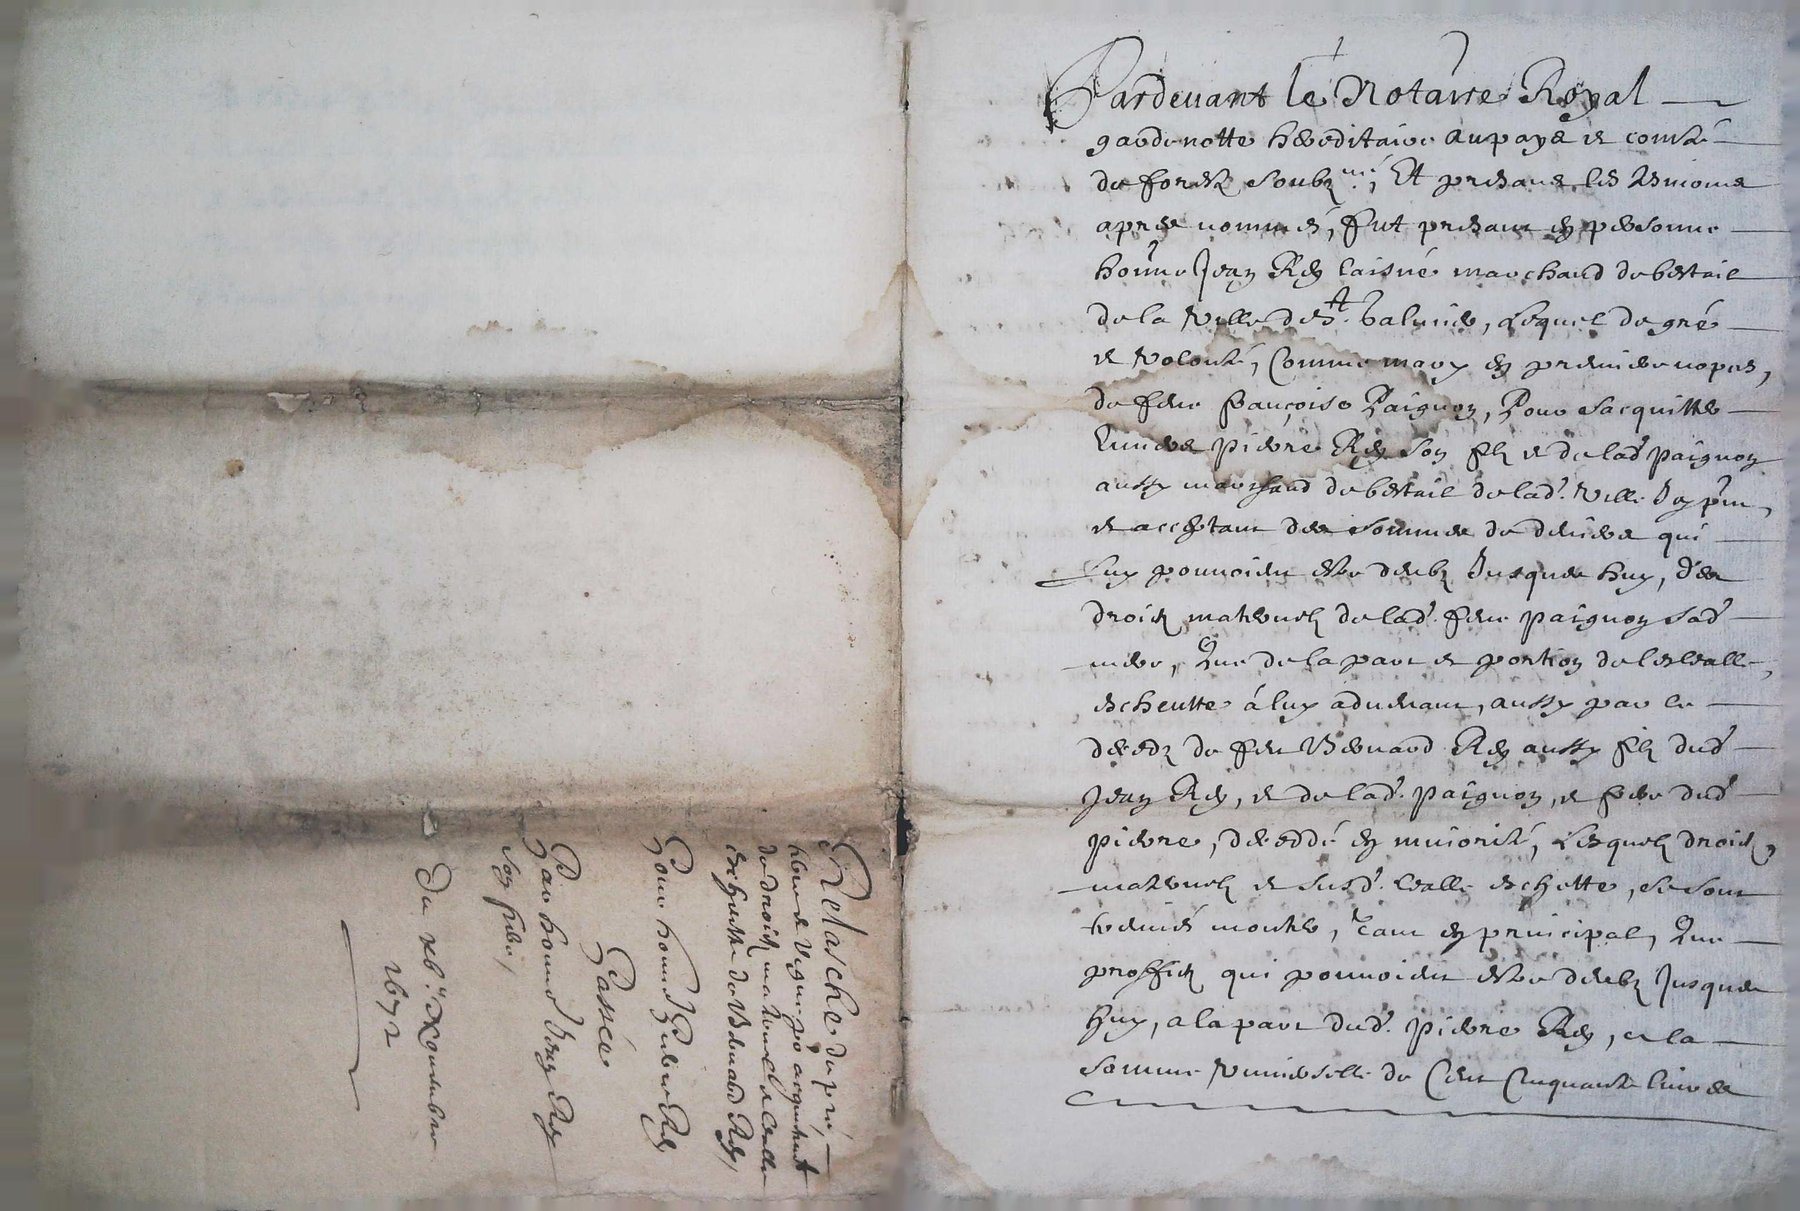 Pardevant le Notaire Royal
gardenotte hereditaire au pays et comté
de forestz soubz.né, Et presans les tesmoins
apres nommés, fut presant en personne
honne Jean Rey laisné marchand de bestail
de la Ville de St. Galmier, Lequel de gré
et volonté, Comme mary en premiere nopces,
de feue françoise Paignon, Pour sacquitter
Envers pierre Rey son filz et de lad. paignon
aussy marchand de bestail de lad. Ville Icy pnt,
et acceptant des sommes de deniers qui
luy pouvoient estre deubz Jusques huy, des
droictz maternelz de lad. feue paignon sad.
mere, Que de la part et portion de
escheutte à luy advenant, aussy par le
decedz de feu Bernard Rey aussy filz dud.
Jean Rey, et de lad. paignon, et frere dud.
pierre, decedé en minorité, Lesquelz droictz
maternelz et susd. escheutte, se sont
treuvés monter, Tant en principal, Que
proffictz qui pouvoient estre deubz Jusques
huy, a la part dud. pierre Rey, a la
somme universelle de Cent Cinquante livres
Relasche du pré,
de droictz maternelz et
escheutte de Bernard Rey,
Pour honne Pierre Rey
Passée
Par honne Jean Rey
son pere,
Du xbe. Novembre
1672